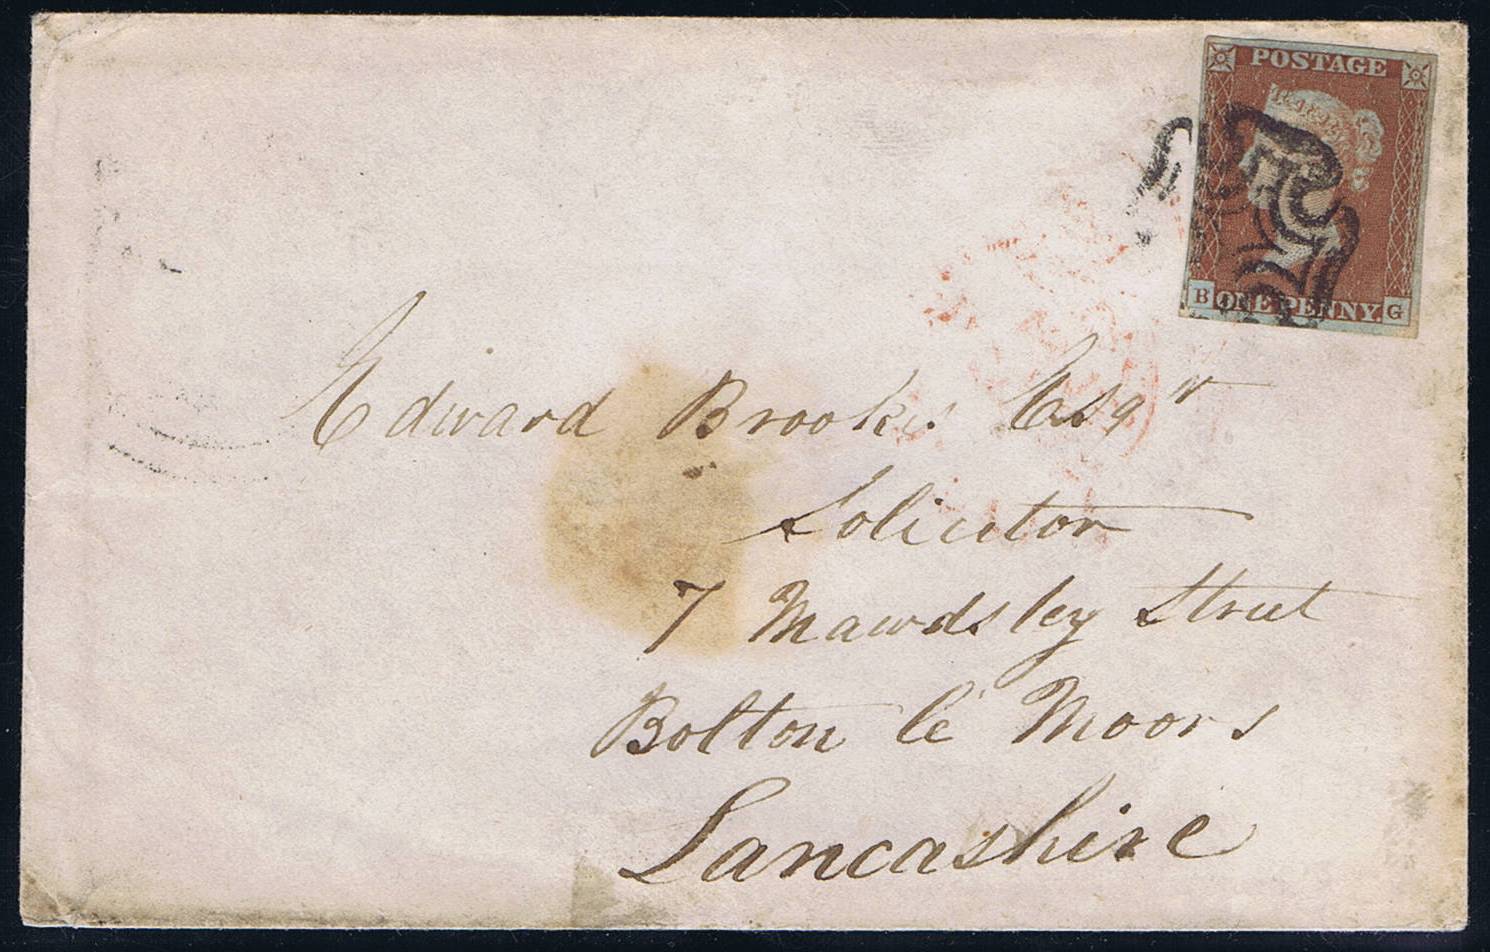 POSTAGE
B ONE PENNY. G
Edward Brooks Esqr
Solicitor
7 Mawdsley Street
Bolton le Moors
Lancashire